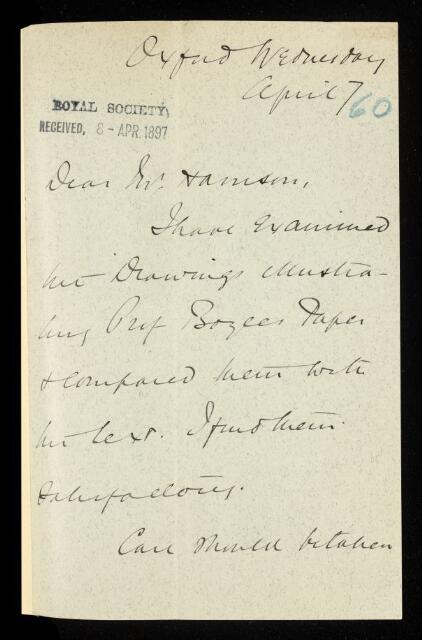 Oxford Wednesday
April 7
60
ROYAL SOCIETY
RECEIVED, 8 - APR. 1897
Dear Mr. Harrison,
I have examined
the Drawings illustra-
ting Prof Boyces Paper
& compared them with
the text. I find them
satisfactory.
Care should be taken